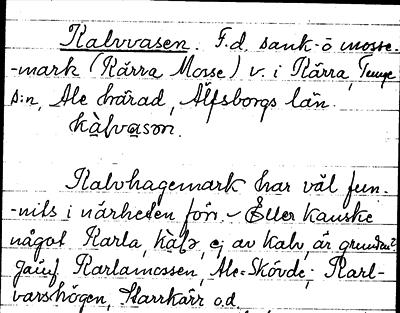 Kalvvasen. F.d. sank- o mosse-
-mark (Kärra Mosse) v. i Kärra, Tunge
s:n, Ale härad, Älfsborgs län.
kàlvasơn.
Kalvhagemark har väl fun-
-nits i närheten förr. - Eller kanske
något Karla, kàḷə, ej av kalv, är grunden?
Jämf. Karlamossen, Ale-Skövde; Karl-
varshögen, Starrkärr o.d.